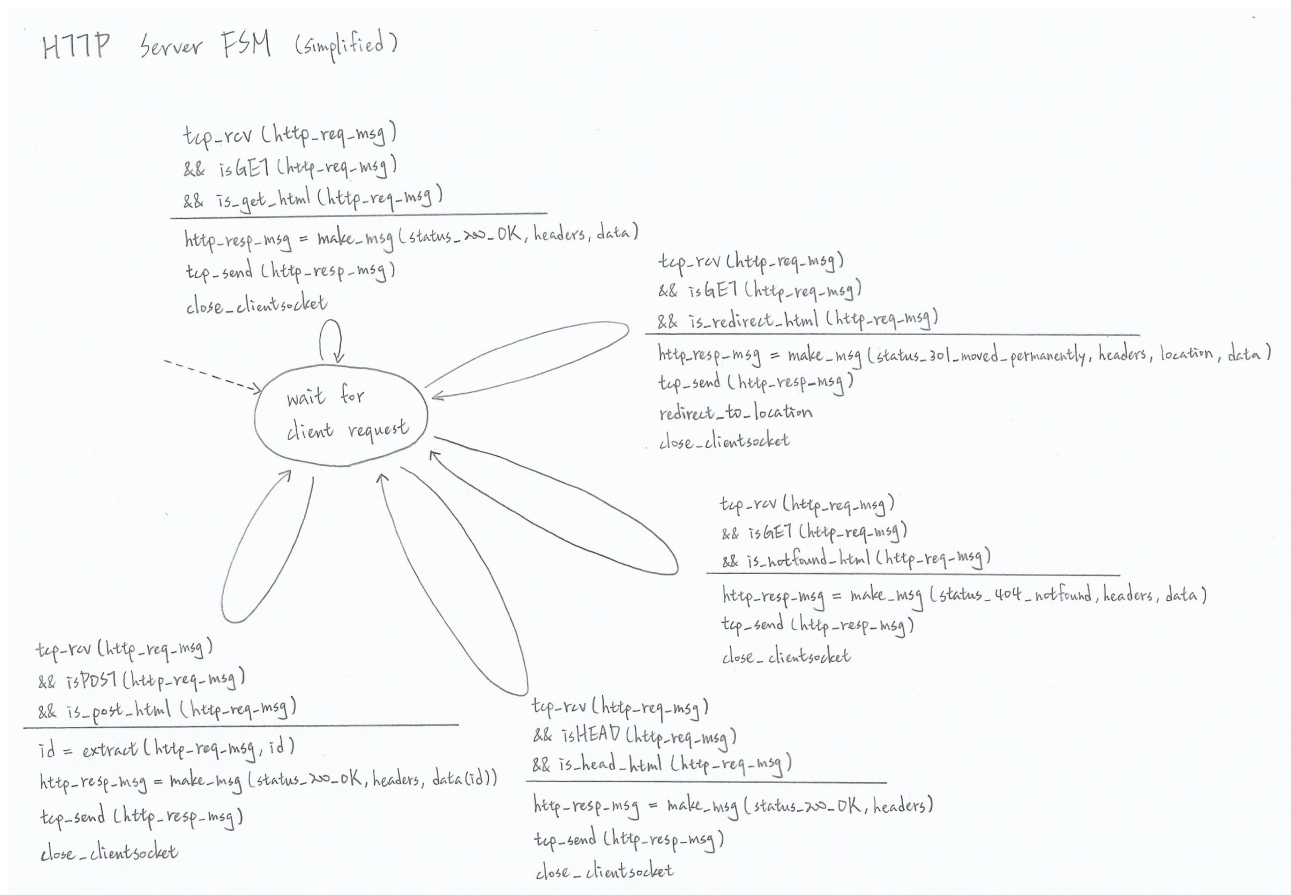 HTTP Server FSM (simplified)
tcp_rcv (http_req_msg)
&& isGET (http_req_msg)
&& is_get_html (http_req_msg)
http_resp_msg = make_msg (status_200_OK, headers, data)
tcp_send (http_resp_msg)
close_clientsocket
tcp_rcv (http_req_msg)
&& isGET (http_req_msg)
&& is_redirect_html (http_req_msg)
http_resp_msg = make_msg (status_301_moved_permanently, headers, location, data)
tcp_send (http_resp_msg)
redirect_to_location
close_clientsocket
wait for
client request
tcp_rcv (http_req_msg)
&& isGET (http_req_msg)
&& is_notfound_html (http_req_msg)
http_resp_msg = make_msg (status_404_notfound, headers, data)
tcp_send (http_resp_msg)
close_clientsocket
tcp_rcv (http_req_msg)
&& isPOST (http_req_msg)
&& is_post_html (http_req_msg)
id = extract (http_req_msg, id)
http_resp_msg = make_msg (status_200_OK, headers, data(id))
tcp_send (http_resp_msg)
close_clientsocket
tcp_rcv (http_req_msg)
&& isHEAD (http_req_msg)
&& is_head_html (http_req_msg)
http_resp_msg = make_msg (status_200_OK, headers)
tcp_send (http_resp_msg)
close_clientsocket